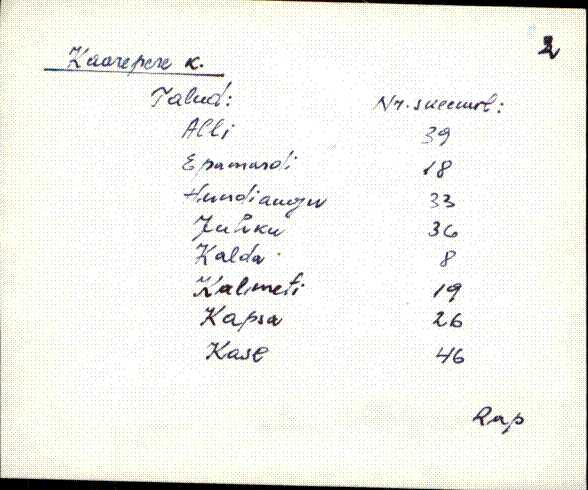 2
Kaarepere k.
Talud: Nr. sueeurel:
Alli 39
Epumardi 18
Hundiaugu 33
Juhku 36
Kalda 8
Kalimeti 19
Kapsa 26
Kase 46
Rap